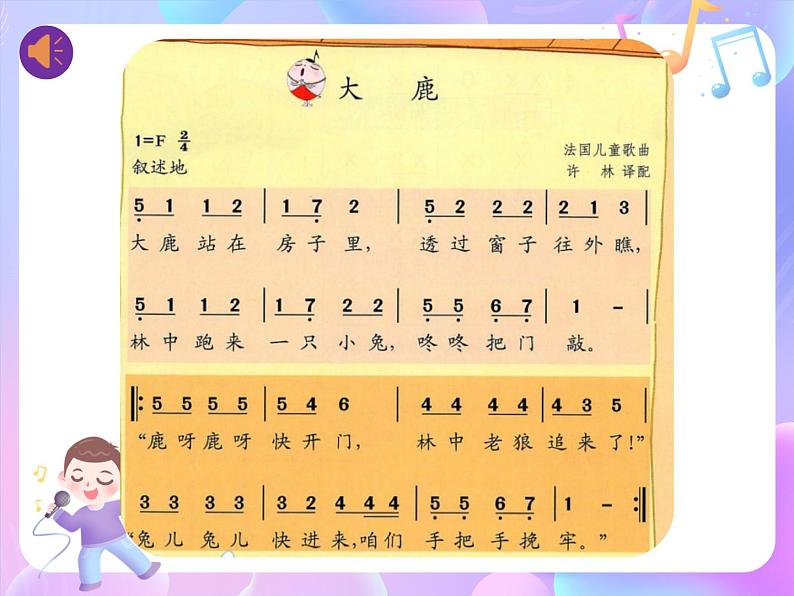 大 鹿
1=F 2/4
法国儿童歌曲
叙述地
许 林 译配
5 1 1 2 | 1 7 2 | 5 2 2 2 | 2 1 3 |
大 鹿 站 在 房 子 里, 透 过 窗 子 往 外 瞧,
5 1 1 2 | 1 7 2 2 | 5 5 6 7 | 1 –
林 中 跑 来 一 只 小 兔, 咚 咚 把 门 敲。
‖: 5 5 5 5 | 5 4 6 | 4 4 4 4 | 4 3 5 |
“鹿 呀 鹿 呀 快 开 门, 林 中 老 狼 追 来 了!”
3 3 3 3 | 3 2 4 4 4 | 5 5 6 7 | 1 – :‖
“兔 儿 兔 儿 快 进 来, 咱 们 手 把 手 挽 牢。”